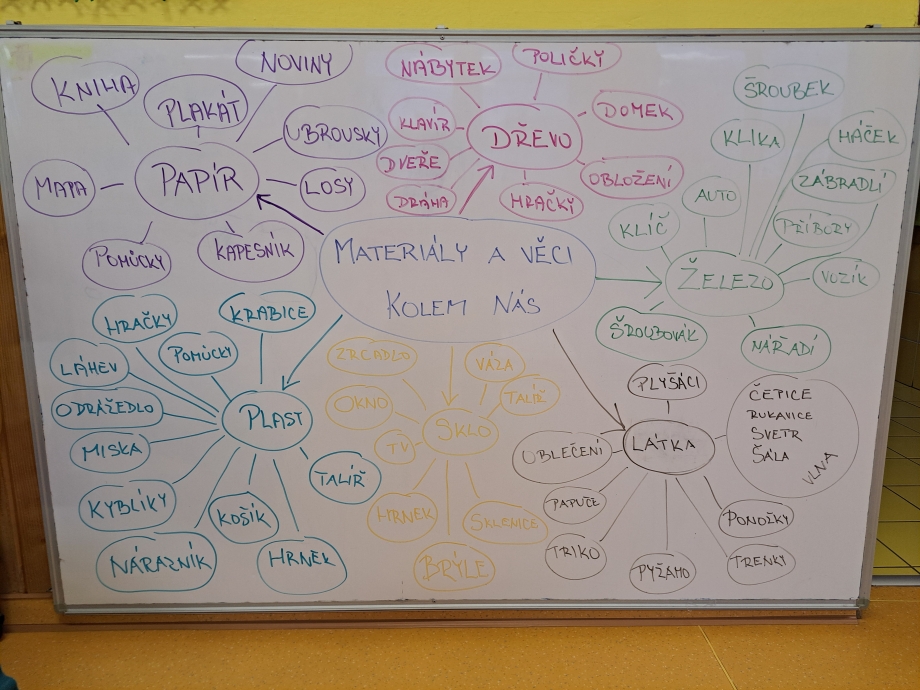 MATERIÁLY A VĚCI
KOLEM NÁS
PAPÍR
KNIHA
PLAKÁT
NOVINY
UBROUSKY
LOSY
KAPESNÍK
POMŮCKY
MAPA
DŘEVO
NÁBYTEK
POLIČKY
DOMEK
OBLOŽENÍ
HRAČKY
DRÁHA
DVEŘE
KLAVÍR
ŽELEZO
ŠROUBEK
KLIKA
HÁČEK
ZÁBRADLÍ
PŘÍBORY
VOZÍK
NÁŘADÍ
ŠROUBOVÁK
KLÍČ
AUTO
LÁTKA
PLYŠÁCI
ČEPICE
RUKAVICE
SVETR
ŠÁLA
VLNA
PONOŽKY
TRENKY
PYŽAMO
TRIKO
PAPUČE
OBLEČENÍ
SKLO
ZRCADLO
VÁZA
TALÍŘ
SKLENICE
BRÝLE
HRNEK
TV
OKNO
PLAST
KRABICE
POMŮCKY
HRAČKY
LÁHEV
ODRÁŽEDLO
MISKA
KYBLÍKY
NÁRAZNÍK
KOŠÍK
HRNEK
TALÍŘ